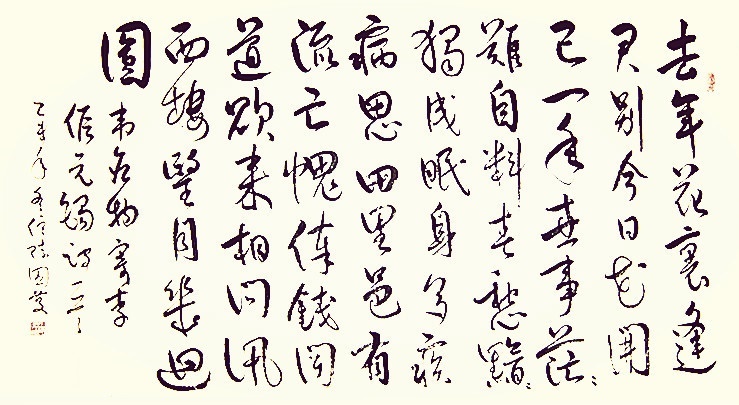 去年花裏逢
君別今日花開
已一年世事茫〻
難自料春愁黯〻
獨成眠身多疾
病思田里邑有
流亡愧俸錢聞
道欲來相問訊
西樓望月幾迴
圓
韋應物寄李
儋元錫詩一
乙未年冬